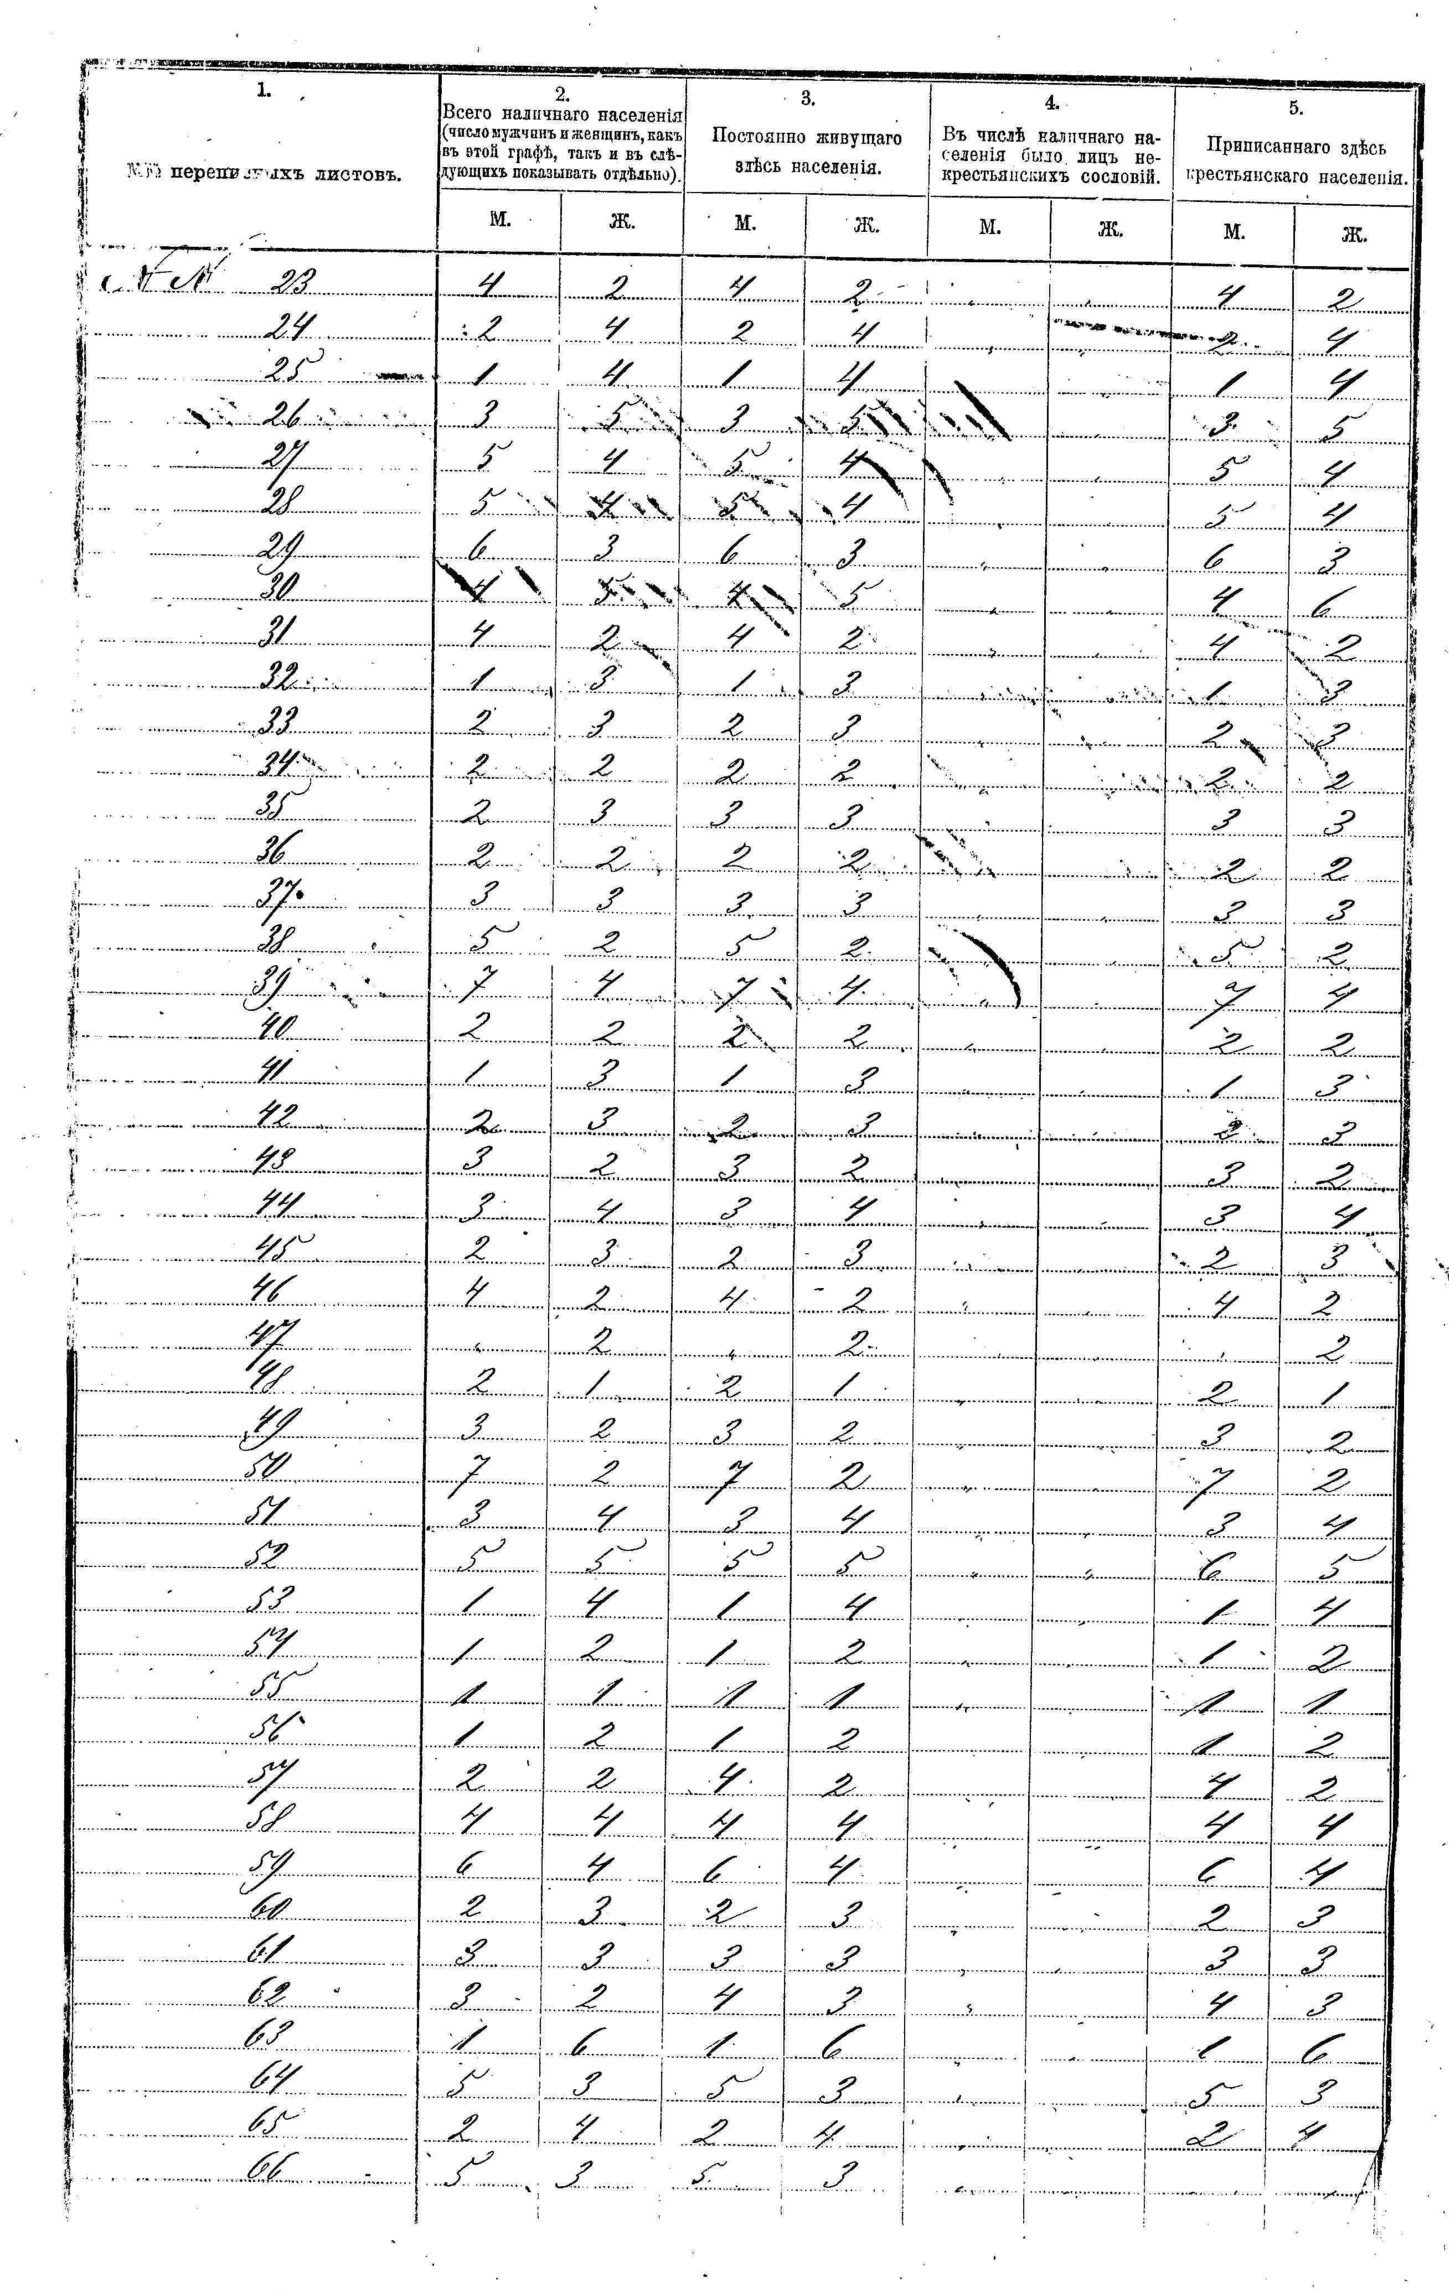 1. 2. 3. 4. 5.
№№ переписныхъ листовъ.
Всего наличнаго населенія
(число мужчинъ и женщинъ, какъ
въ этой графѣ, такъ и въ слѣ-
дующихъ показывать отдѣльно).
Постоянно живущаго
здѣсь населенія.
Въ числѣ наличнаго на-
селенія было лицъ не-
крестьянскихъ сословій.
Приписаннаго здѣсь
крестьянскаго населенія.
М. Ж. М. Ж. М. Ж. М. Ж.
№№ 23 4 2 4 2 " " 4 2
24 2 4 2 4 " " 2 4
25 1 4 1 4 " " 1 4
26 3 5 3 5 " " 3 5
27 5 4 5 4 " " 5 4
28 5 4 5 4 " " 5 4
29 6 3 6 3 " " 6 3
30 4 5 4 5 " " 4 6
31 4 2 4 2 " " 4 2
32 1 3 1 3 " " 1 3
33 2 3 2 3 " " 2 3
34 2 2 2 2 " " 2 2
35 2 3 3 3 " " 3 3
36 2 2 2 2 " " 2 2
37 3 3 3 3 " " 3 3
38 5 2 5 2 " " 5 2
39 7 4 7 4 " " 7 4
40 2 2 2 2 " " 2 2
41 1 3 1 3 " " 1 3
42 2 3 2 3 " " 2 3
43 3 2 3 2 " " 3 2
44 3 4 3 4 " " 3 4
45 2 3 2 3 " " 2 3
46 4 2 4 2 " " 4 2
47 " 2 " 2 " " " 2
48 2 1 2 1 " " 2 1
49 3 2 3 2 " " 3 2
50 7 2 7 2 " " 7 2
51 3 4 3 4 " " 3 4
52 5 5 5 5 " " 6 5
53 1 4 1 4 " " 1 4
54 1 2 1 2 " " 1 2
55 1 1 1 1 " " 1 1
56 1 2 1 2 " " 1 2
57 2 2 4 2 " " 4 2
58 4 4 4 4 " " 4 4
59 6 4 6 4 " " 6 4
60 2 3 2 3 " " 2 3
61 3 3 3 3 " " 3 3
62 3 2 4 3 " " 4 3
63 1 6 1 6 " " 1 6
64 5 3 5 3 " " 5 3
65 2 4 2 4 " " 2 4
66 5 3 5 3 "